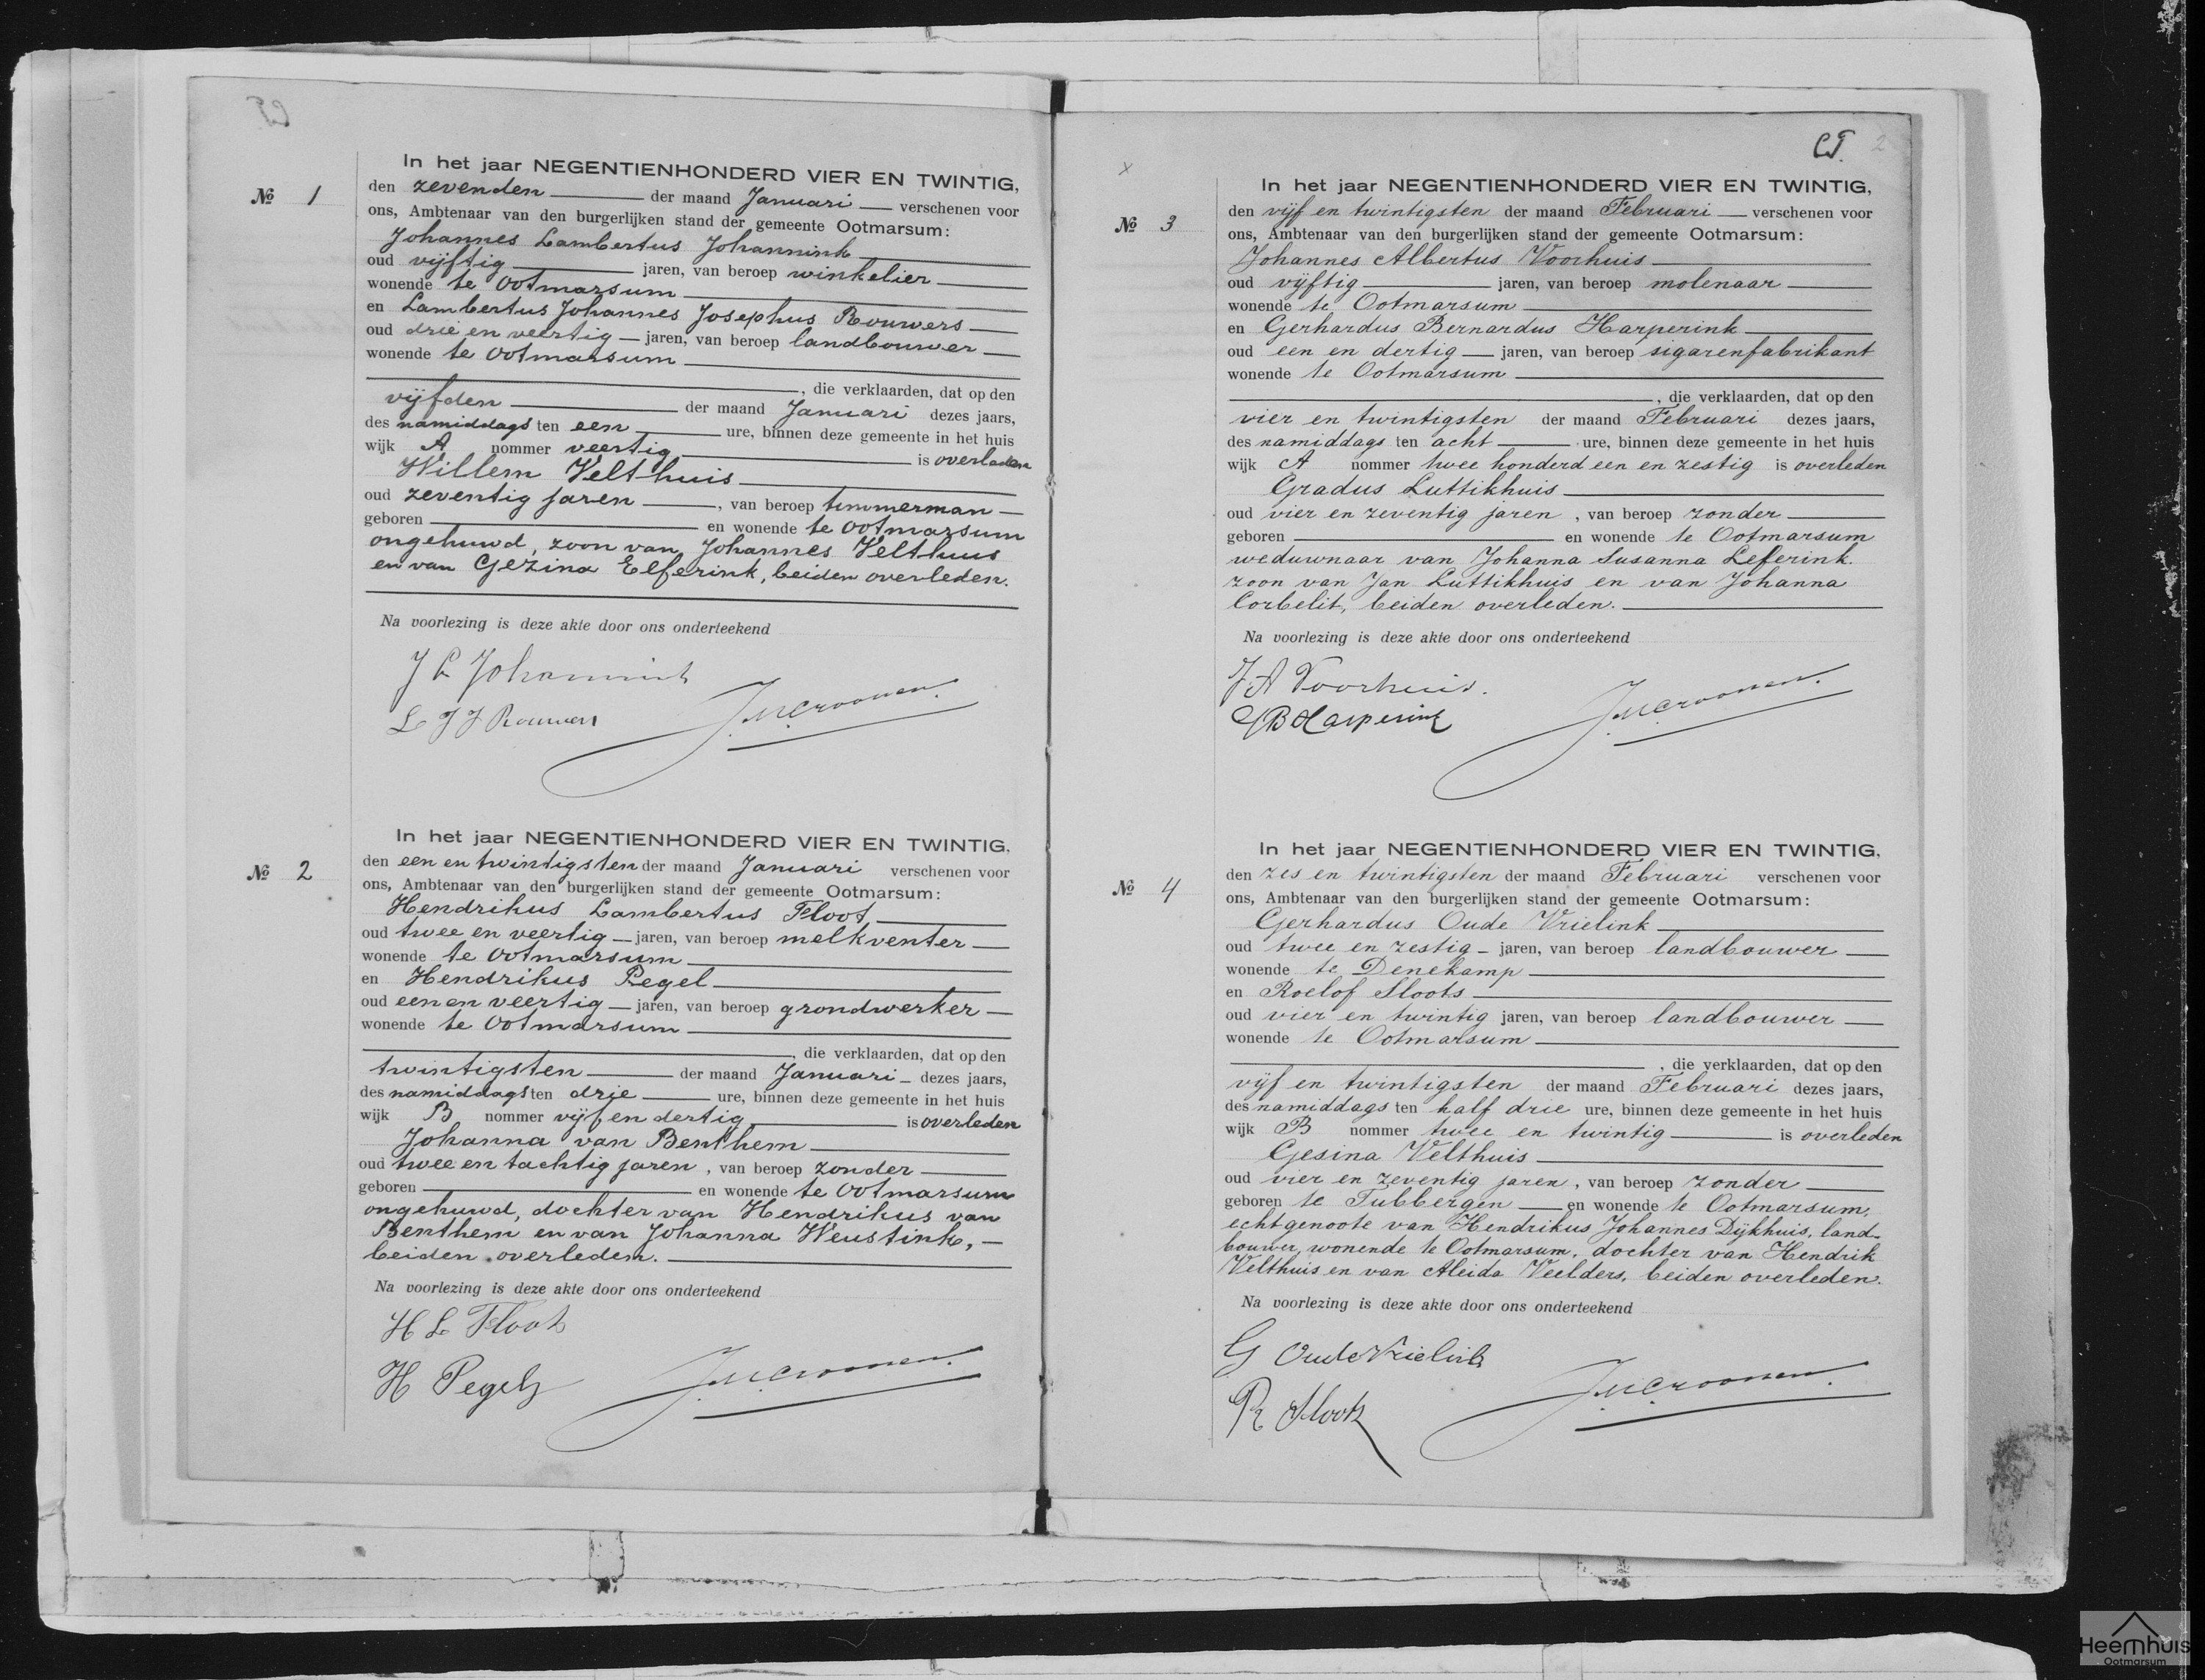 In het jaar NEGENTIENHONDERD VIER EN TWINTIG,
№ 1
den zevenden der maand Januari verschenen voor
ons, Ambtenaar van den burgerlijken stand der gemeente Ootmarsum:
Johannes Lambertus Johannink
oud vijftig jaren, van beroep winkelier
wonende te Ootmarsum
en Lambertus Johannes Josephus Rouwers
oud drie en veertig jaren, van beroep landbouwer
wonende te Ootmarsum
, die verklaarden, dat op den
vijfden der maand Januari dezes jaars,
des namiddags ten een ure, binnen deze gemeente in het huis
wijk A nommer veertig is overleden
Willem Velthuis
oud zeventig jaren, van beroep timmerman
geboren en wonende te Ootmarsum
ongehuwd, zoon van Johannes Velthuis
en van Gezina Elferink, beiden overleden.
Na voorlezing is deze akte door ons onderteekend
J L Johannink
L J J Rouwers
In het jaar NEGENTIENHONDERD VIER EN TWINTIG.
№ 2
den een en twintigsten der maand Januari verschenen voor
ons, Ambtenaar van den burgerlijken stand der gemeente Ootmarsum:
Hendrikus Lambertus Floot
oud twee en veertig jaren, van beroep melkventer
wonende te Ootmarsum
en Hendrikus Pegel
oud een en veertig jaren, van beroep grondwerker
wonende te Ootmarsum
, die verklaarden, dat op den
twintigsten der maand Januari dezes jaars,
des namiddags ten drie ure, binnen deze gemeente in het huis
wijk B nommer vijf en dertig is overleden
Johanna van Benthem
oud twee en tachtig jaren, van beroep zonder
geboren en wonende te Ootmarsum
ongehuwd, dochter van Hendrikus van
Benthem en van Johanna Weustink,
beiden overleden.
Na voorlezing is deze akte door ons onderteekend
H L Floot
H Pegel
2
In het jaar NEGENTIENHONDERD VIER EN TWINTIG,
№ 3
den vijf en twintigsten der maand Februari verschenen voor
ons, Ambtenaar van den burgerlijken stand der gemeente Ootmarsum:
Johannes Albertus Voorhuis
oud vijftig jaren, van beroep molenaar
wonende te Ootmarsum
en Gerhardus Bernardus Harperink
oud een en dertig jaren, van beroep sigarenfabrikant
wonende te Ootmarsum
, die verklaarden, dat op den
vier en twintigsten der maand Februari dezes jaars,
des namiddags ten acht ure, binnen deze gemeente in het huis
wijk A nommer twee honderd een en zestig is overleden
Gradus Luttikhuis
oud vier en zeventig jaren, van beroep zonder
geboren en wonende te Ootmarsum
weduwnaar van Johanna Susanna Leferink.
zoon van Jan Luttikhuis en van Johanna
Corbelit, beiden overleden.
Na voorlezing is deze akte door ons onderteekend
J A Voorhuis.
G B Harperink
In het jaar NEGENTIENHONDERD VIER EN TWINTIG,
№ 4
den zes en twintigsten der maand Februari verschenen voor
ons, Ambtenaar van den burgerlijken stand der gemeente Ootmarsum:
Gerhardus Oude Vrielink
oud twee en zestig jaren, van beroep landbouwer
wonende te Denekamp
en Roelof Sloots
oud vier en twintig jaren, van beroep landbouwer
wonende te Ootmarsum
, die verklaarden, dat op den
vijf en twintigsten der maand Februari dezes jaars,
des namiddags ten half drie ure, binnen deze gemeente in het huis
wijk B nommer twee en twintig is overleden
Gesina Velthuis
oud vier en zeventig jaren, van beroep zonder
geboren te Tubbergen en wonende te Ootmarsum,
echtgenoote van Hendrikus Johannes Dijkhuis, land-
bouwer, wonende te Ootmarsum, dochter van Hendrik
Velthuis en van Aleida Veelders, beiden overleden.
Na voorlezing is deze akte door ons onderteekend
G Oude Vrielink
R Sloots
Heemhuis
Ootmarsum